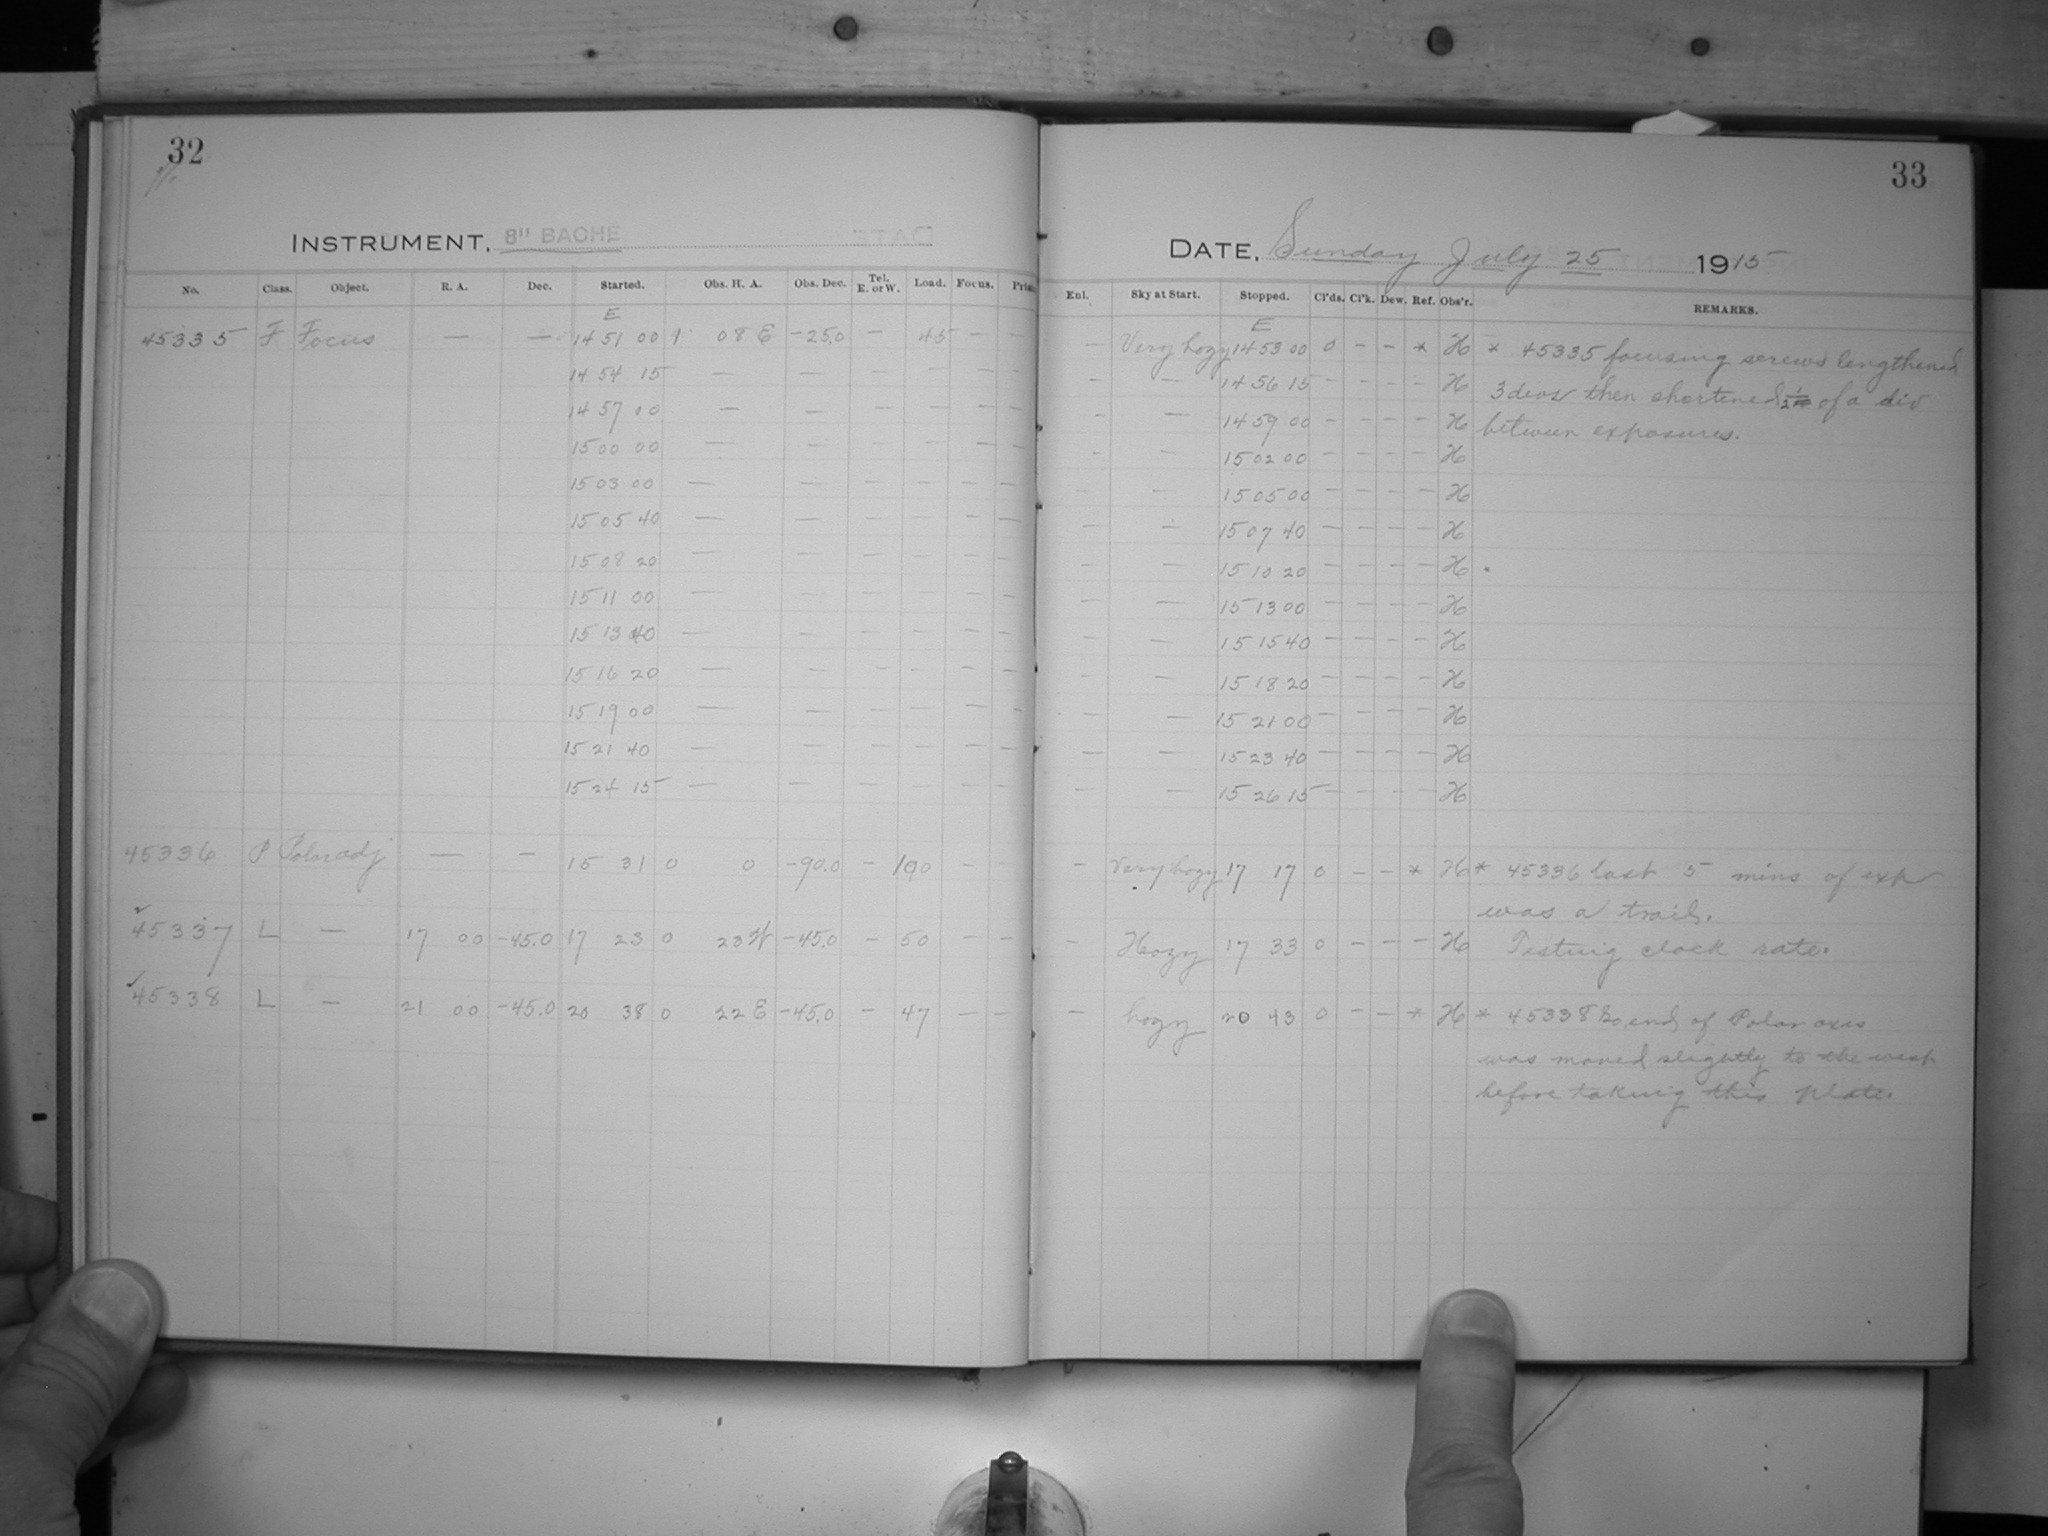 32
INSTRUMENT. 8" BACHE
No. Class. Object. R. A. Dec. Started. Obs. H. A. Obs. Dec. Tel. E. or W. Load. Focus.
E
45335 F Focus — — 14 51 00 1 08 E -25.0 — 45 — —
14 54 15 — — — — — —
14 57 00 — — — — — —
15 00 00 — — — — — —
15 03 00 — — — — — —
15 05 40 — — — — — —
15 08 20 — — — — — —
15 11 00 — — — — — —
15 13 40 — — — — — —
15 16 20 — — — — — —
15 19 00 — — — — — —
15 21 40 — — — — — —
15 24 15 — — — — — —
45336 P Polar adj — — 15 31 0 0 -90.0 — 100 — —
45337 L — 17 00 -45.0 17 23 0 23 W -45.0 — 50 — —
45338 L — 21 00 -45.0 20 38 0 22 E -45.0 — 47 — —
33
DATE. Sunday July 25 1915
Enl. Sky at Start. Stopped. Cl'ds. Cl'k. Dew. Ref. Obs'r. REMARKS.
E
— Very hazy 14 53 00 0 — — * H * 45335 focusing screws lengthened
— — 14 56 15 — — — — H 3 devs then shortened 1/2 of a div
— — 14 59 00 — — — — H between exposures.
— — 15 02 00 — — — — H
— — 15 05 00 — — — — H
— — 15 07 40 — — — — H
— — 15 10 20 — — — — H
— — 15 13 00 — — — — H
— — 15 15 40 — — — — H
— — 15 18 20 — — — — H
— — 15 21 00 — — — — H
— — 15 23 40 — — — — H
— — 15 26 15 — — — — H
— Very hazy 17 17 0 — — * H * 45336 last 5 mins of exp
was a trail.
— Hazy 17 33 0 — — — H Testing clock rate.
— hazy 20 43 0 — — * H * 45338 So. end of Polar axis
was moved slightly to the west
before taking this plate.